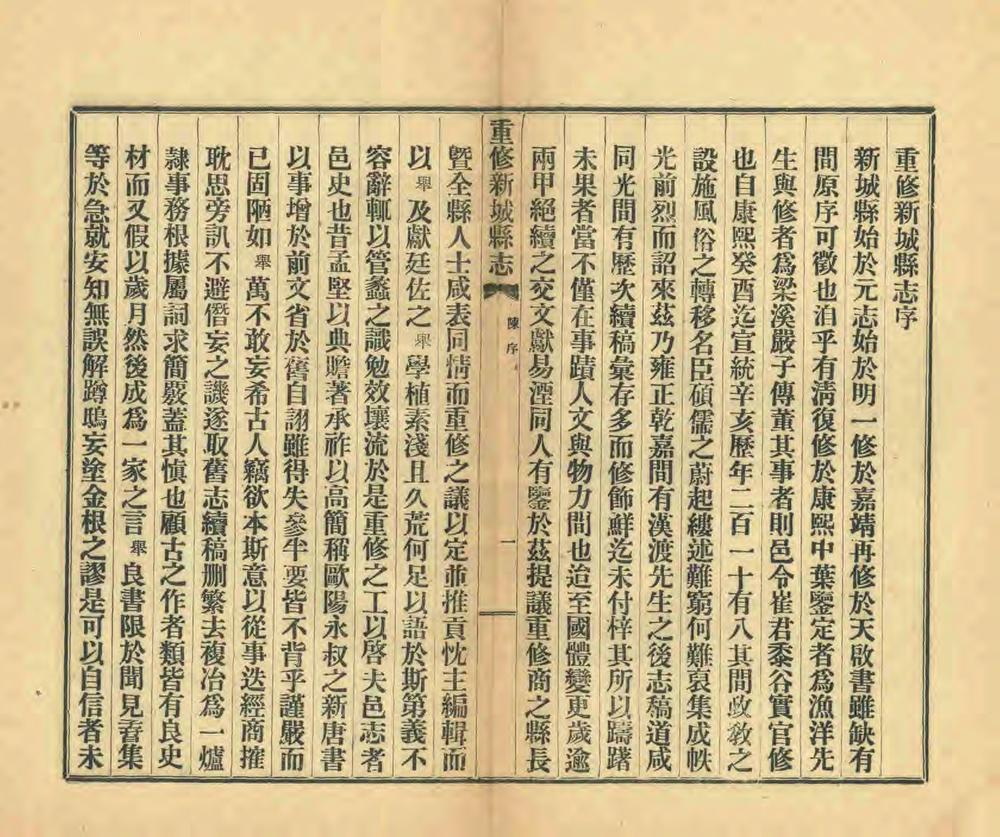 重修新城縣志序
新城縣始於元志始於明一修於嘉靖再修於天啟書雖缺有
間原序可徵也洎乎有淸復修於康熙中葉鑒定者爲漁洋先
生與修者爲梁溪嚴子傳董其事者則邑令崔君黍谷實官修
也自康熙癸酉迄宣統辛亥歷年二百一十有八其間政敎之
設施風俗之轉移名臣碩儒之蔚起縷述難窮何難裒集成帙
光前烈而詔來茲乃雍正乾嘉間有漢渡先生之後志稿道咸
同光間有歷次續稿彙存多而修飾鮮迄未付梓其所以躊躇
未果者當不僅在事蹟人文與物力間也迨至國體變更歲逾
兩甲絕續之交文獻易湮同人有鑒於茲提議重修商之縣長
重修新城縣志
陳序
一
曁全縣人士咸表同情而重修之議以定並推貢忱主編輯而
以舉及獻廷佐之舉學植素淺且久荒何足以語於斯第義不
容辭輒以管蠡之識勉效壤流於是重修之工以啓夫邑志者
邑史也昔孟堅以典贍著承祚以高簡稱歐陽永叔之新唐書
以事增於前文省於舊自詡雖得失參半要皆不背乎謹嚴而
已固陋如舉萬不敢妄希古人竊欲本斯意以從事迭經商搉
耽思旁訊不避僭妄之譏遂取舊志續稿删繁去複冶爲一爐
隸事務根據屬詞求簡覈蓋其愼也顧古之作者類皆有良史
材而又假以歲月然後成爲一家之言舉良書限於聞見著集
等於急就安知無誤解蹲鴟妄塗金根之謬是可以自信者未